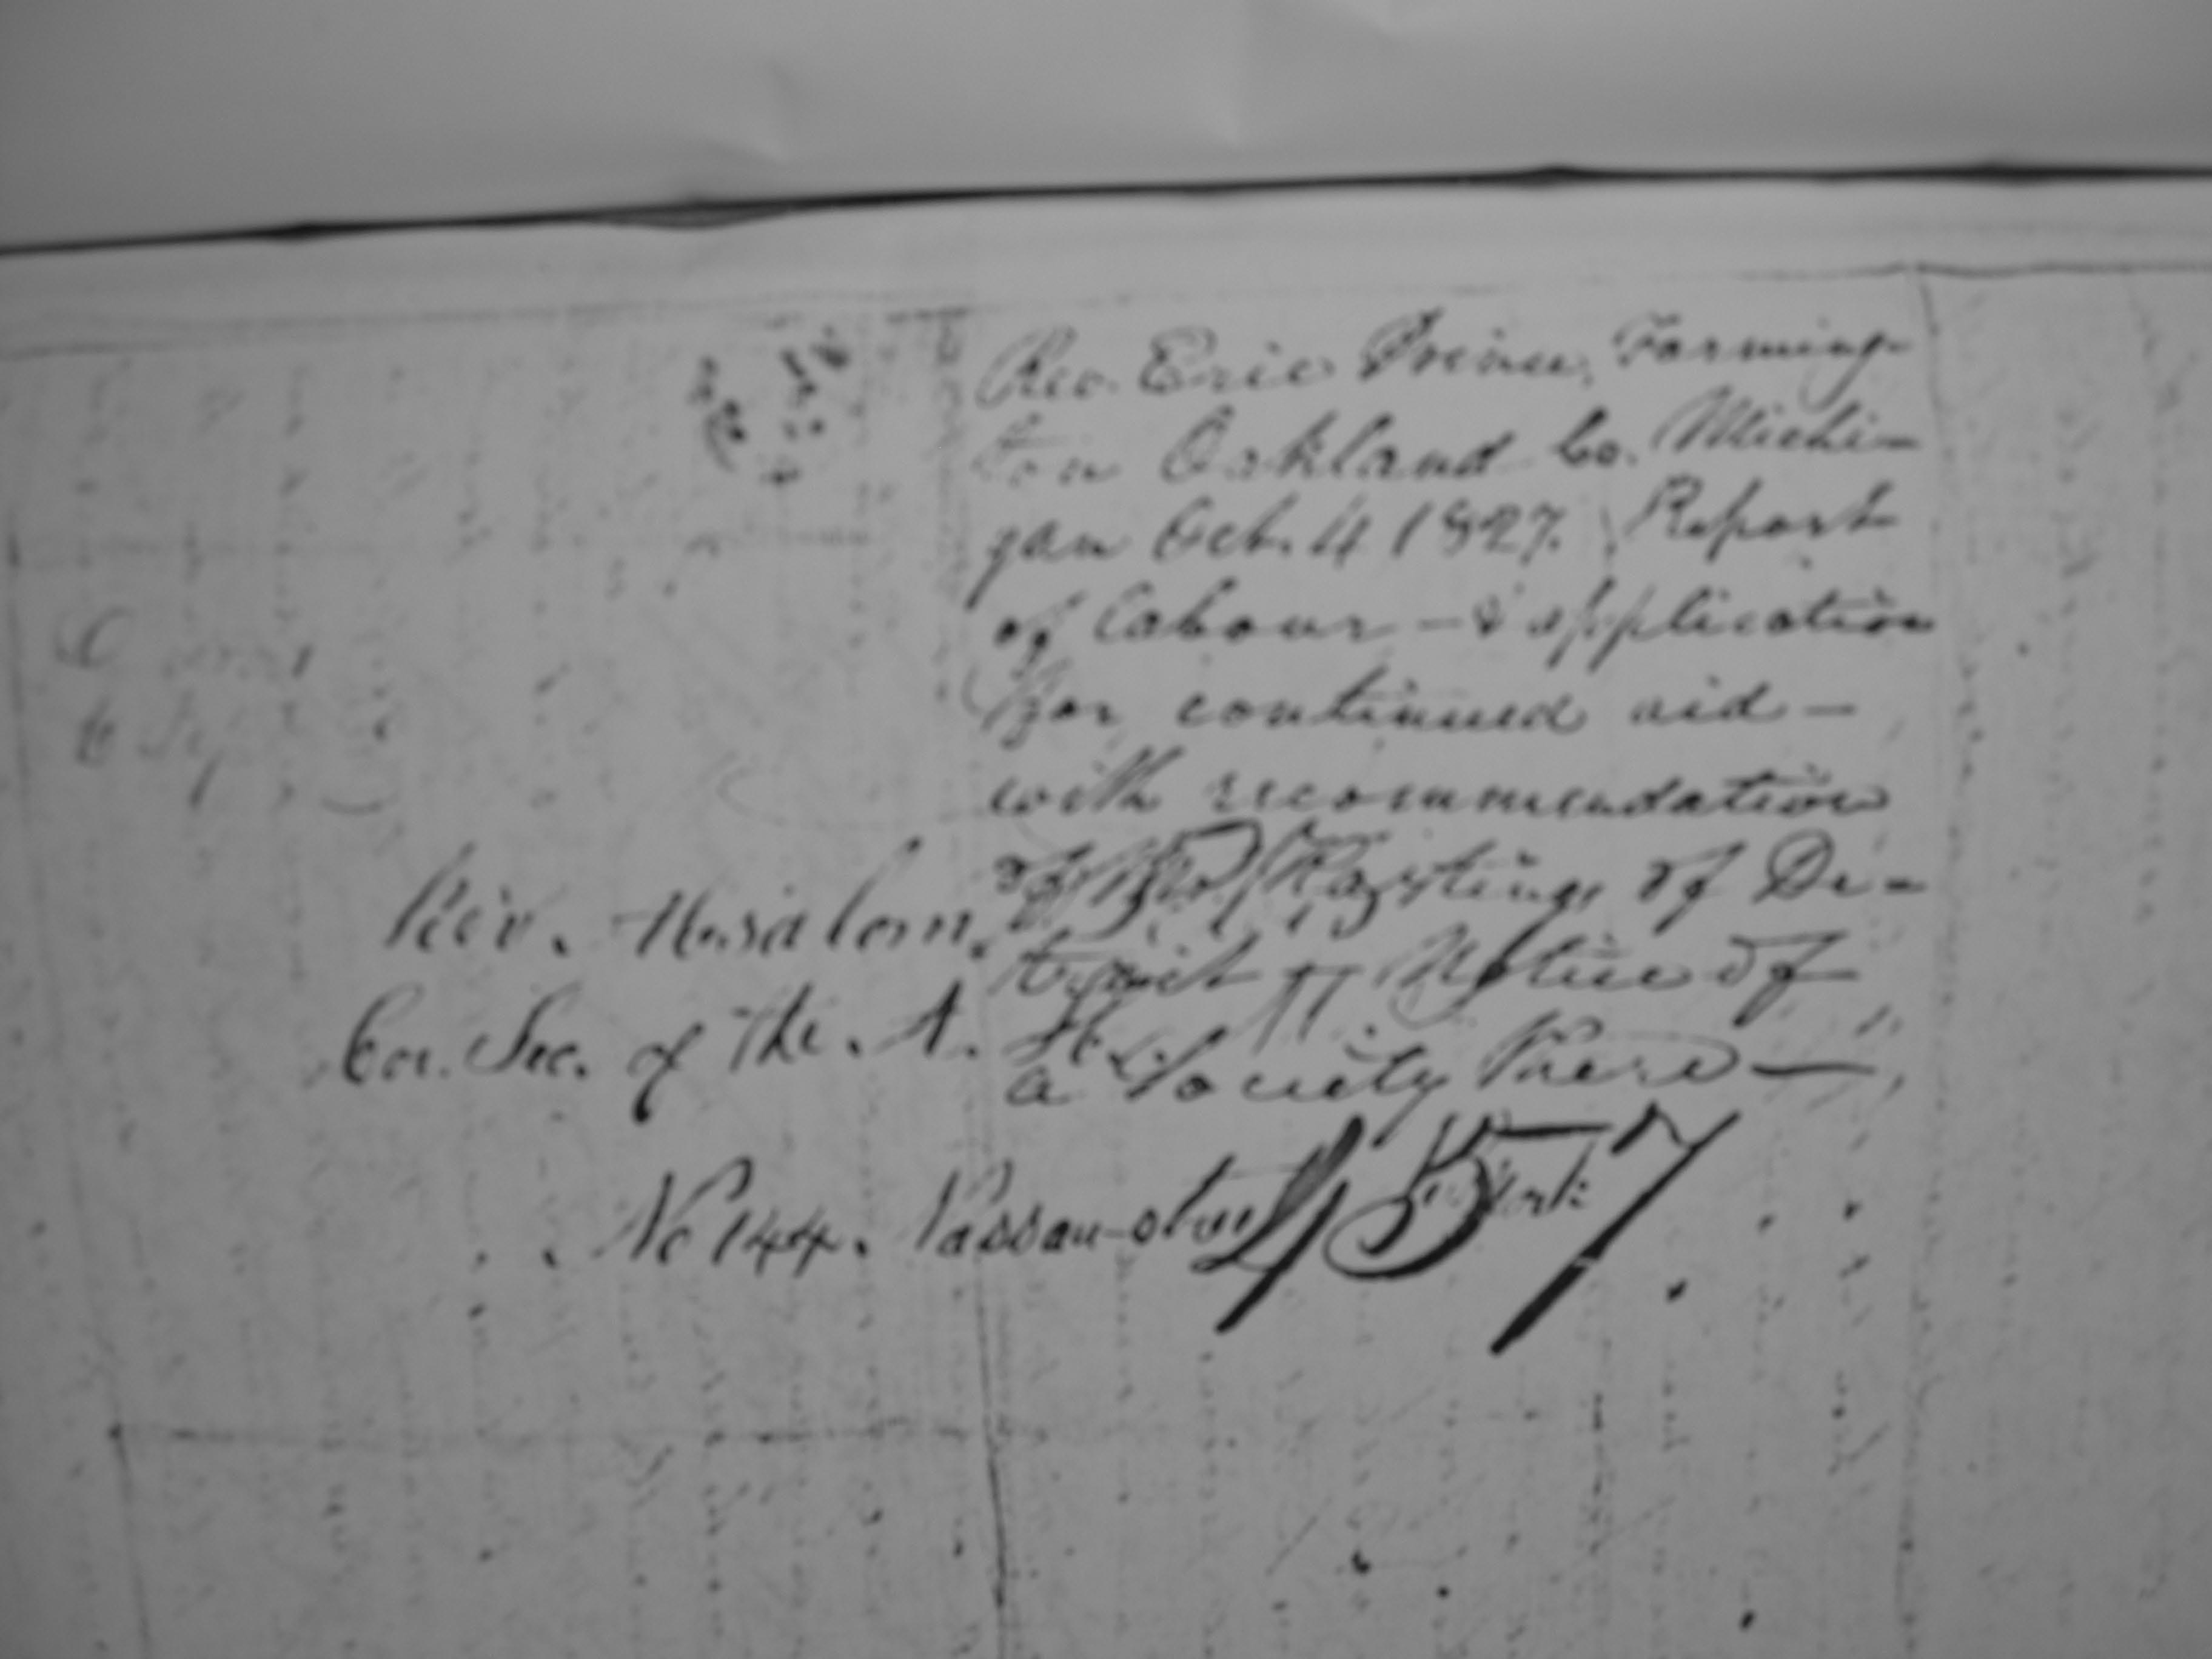 Rev. Eric Prince, Farming-
ton Oakland Co. Michi-
gan Oct. 4 1827. Report
of labour - & application
for continued aid -
with recommendation
of Mr. Hastings of De-
troit Notice of
a Society there -
457
Rev. Absalom
Cor. Sec. of the A. H.
No 144. Nassau-street York